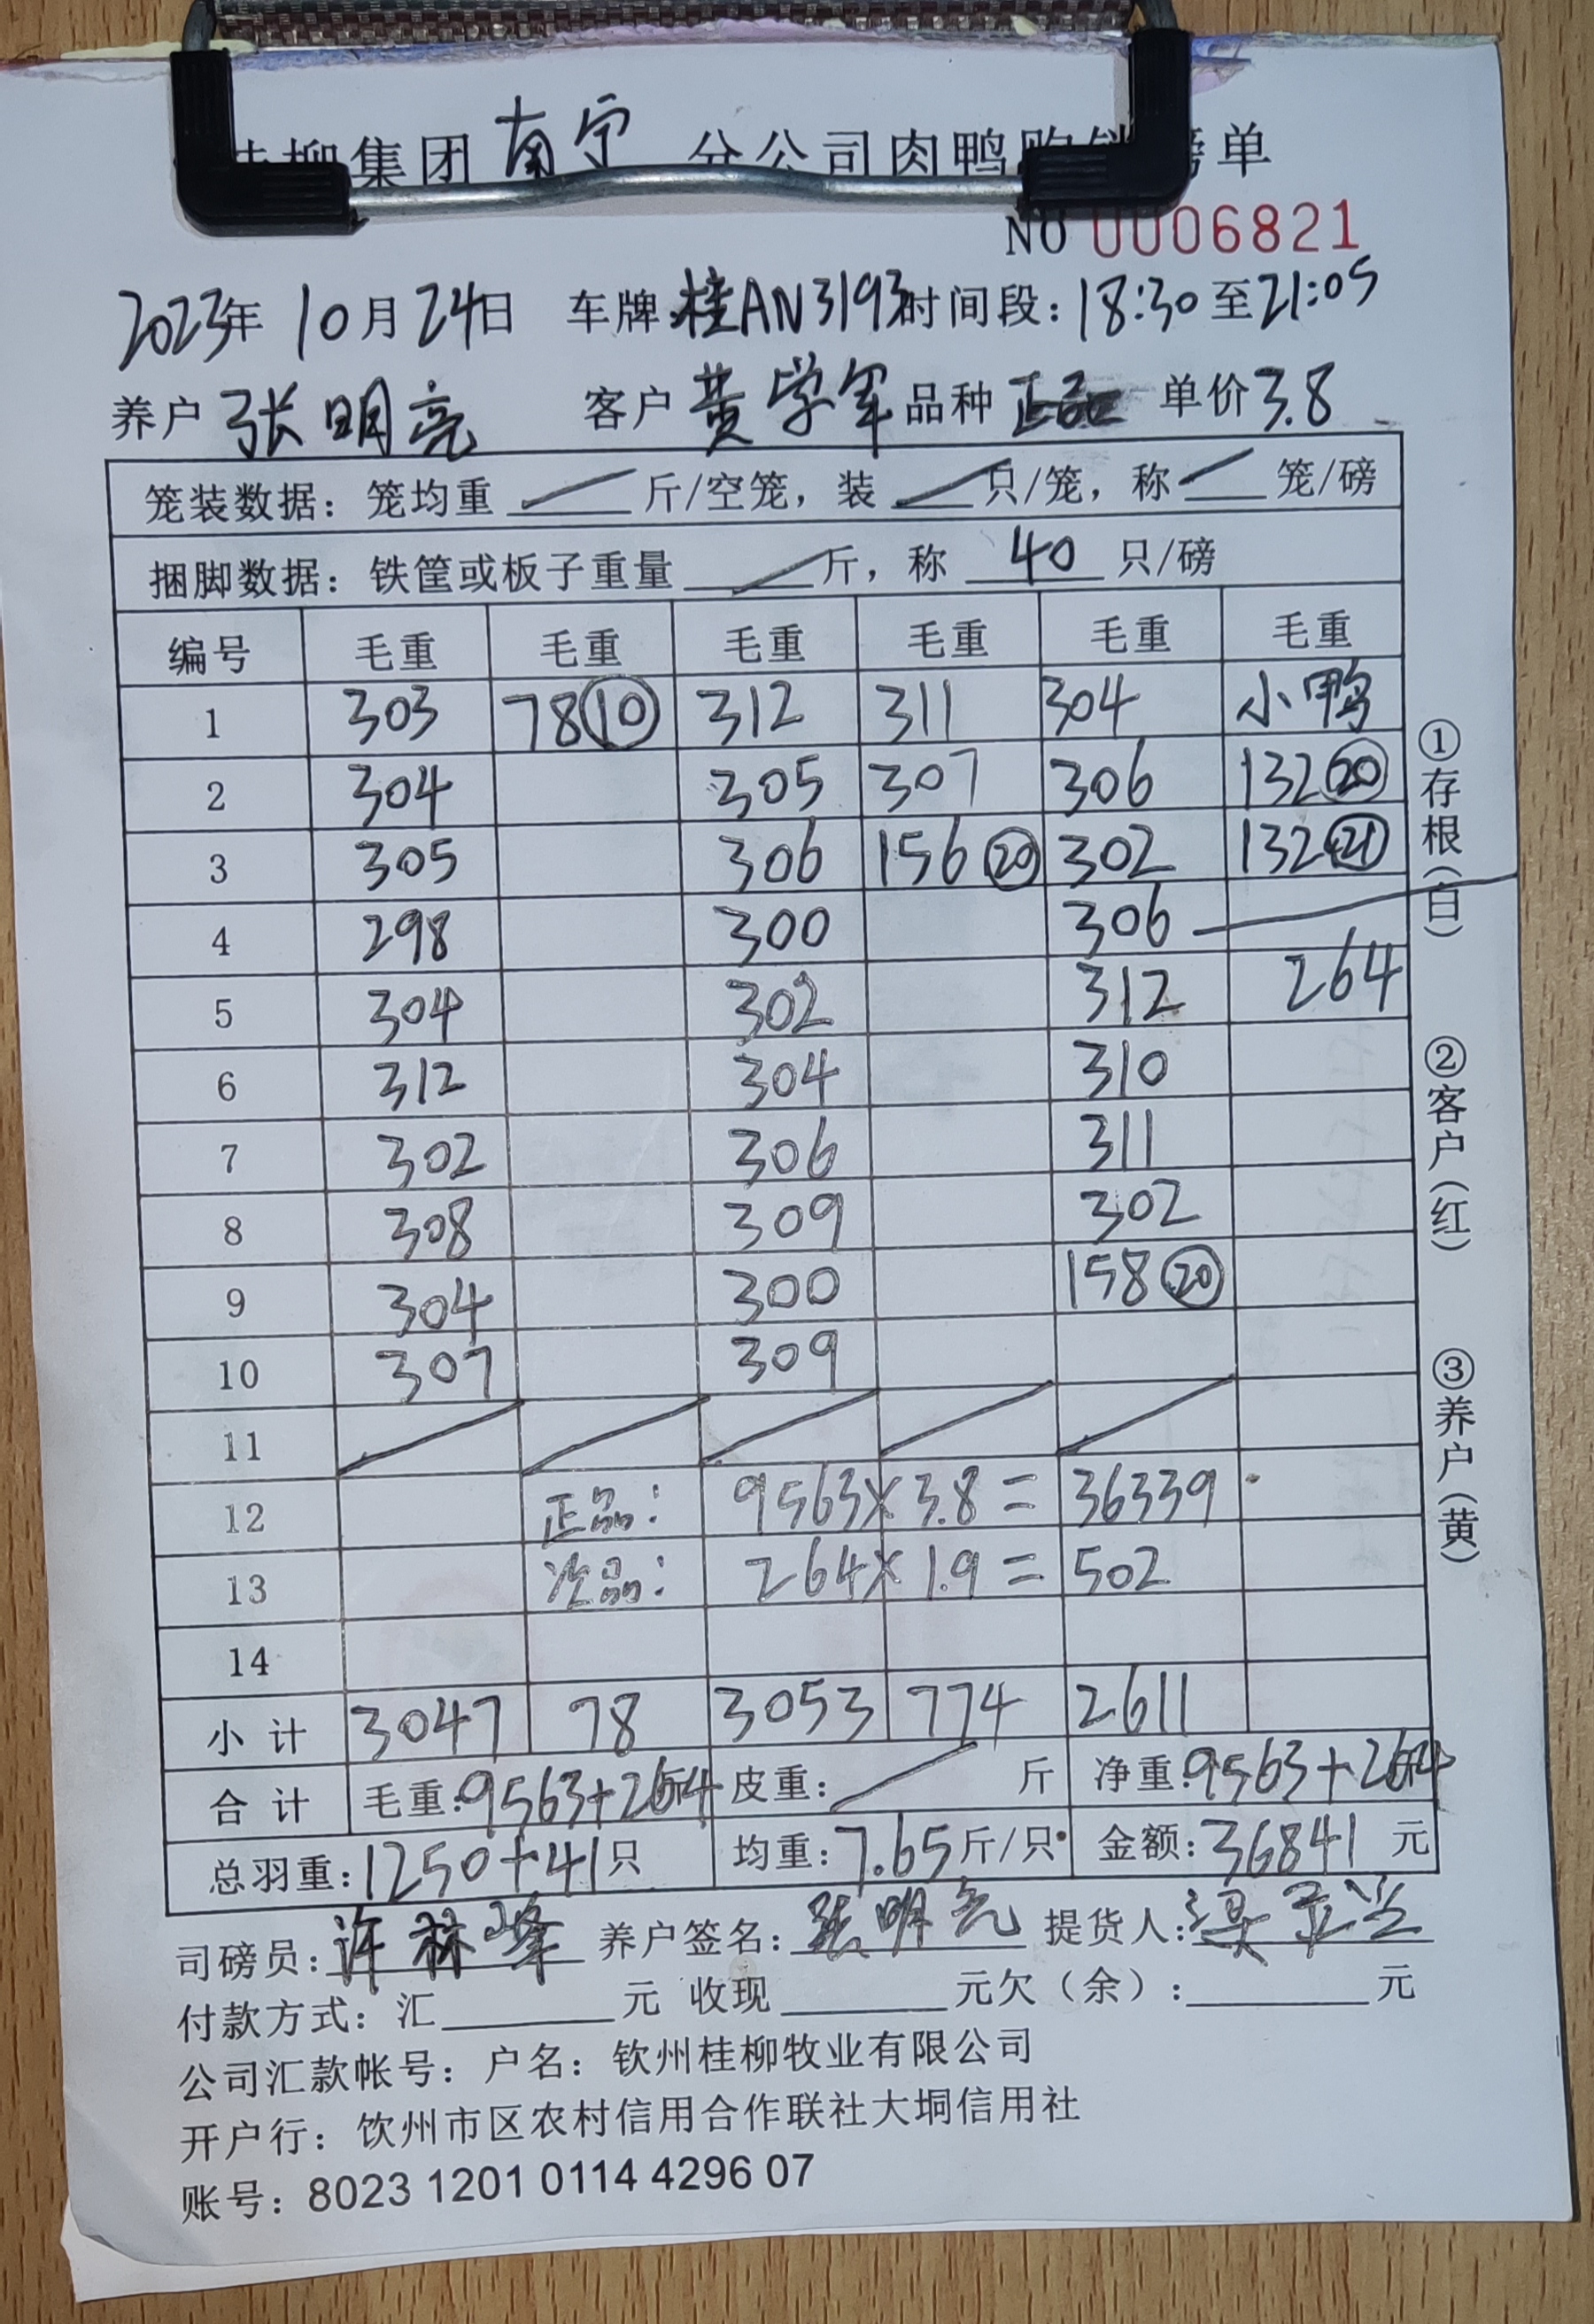 柳集团 南宁 分公司肉鸭购销磅单
NO 0006821
2023年 10月 24日 车牌:桂AN3193 时间段:18:30 至 21:05
养户 张明亮 客户 黄学军 品种 正品 单价 3.8
笼装数据: 笼均重 / 斤/空笼, 装 / 只/笼, 称 / 笼/磅
捆脚数据: 铁筐或板子重量 / 斤, 称 40 只/磅
编号 毛重 毛重 毛重 毛重 毛重 毛重
1 303 78⑩ 312 311 304 小鸭
2 304 305 307 306 132⑳
3 305 306 156⑳ 302 132㉑
4 298 300 306
5 304 302 312 264
6 312 304 310
7 302 306 311
8 308 309 302
9 304 300 158⑳
10 307 309
11 / / / / /
12 正品: 9563×3.8= 36339
13 次品: 264×1.9= 502
14
小计 3047 78 3053 774 2611
合计 毛重:9563+264斤 皮重: / 斤 净重:9563+264斤
总羽重:1250+41只 均重:7.65斤/只 金额:36841 元
司磅员:许林峰 养户签名:张明亮 提货人:
付款方式: 汇 元 收现 元欠(余): 元
公司汇款帐号: 户名: 钦州桂柳牧业有限公司
开户行: 饮州市区农村信用合作联社大垌信用社
账号: 8023 1201 0114 4296 07
①存根(白)
②客户(红)
③养户(黄)